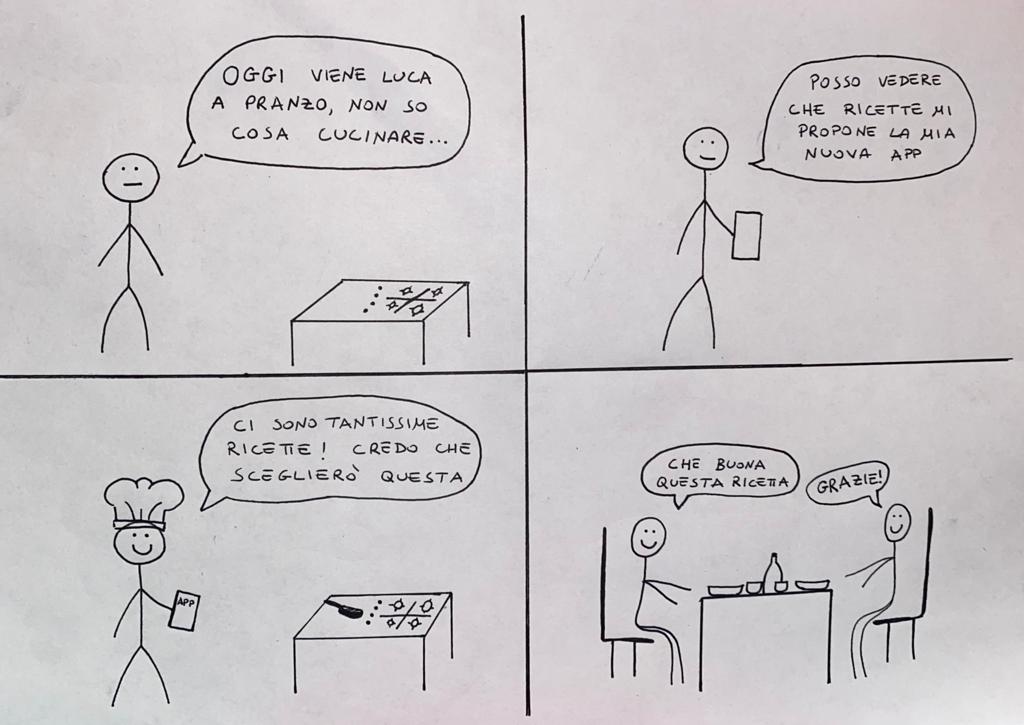 OGGI VIENE LUCA
A PRANZO, NON SO
COSA CUCINARE...
POSSO VEDERE
CHE RICETTE MI
PROPONE LA MIA
NUOVA APP
CI SONO TANTISSIME
RICETTE! CREDO CHE
SCEGLIERÒ QUESTA
APP
CHE BUONA
QUESTA RICETTA
GRAZIE!